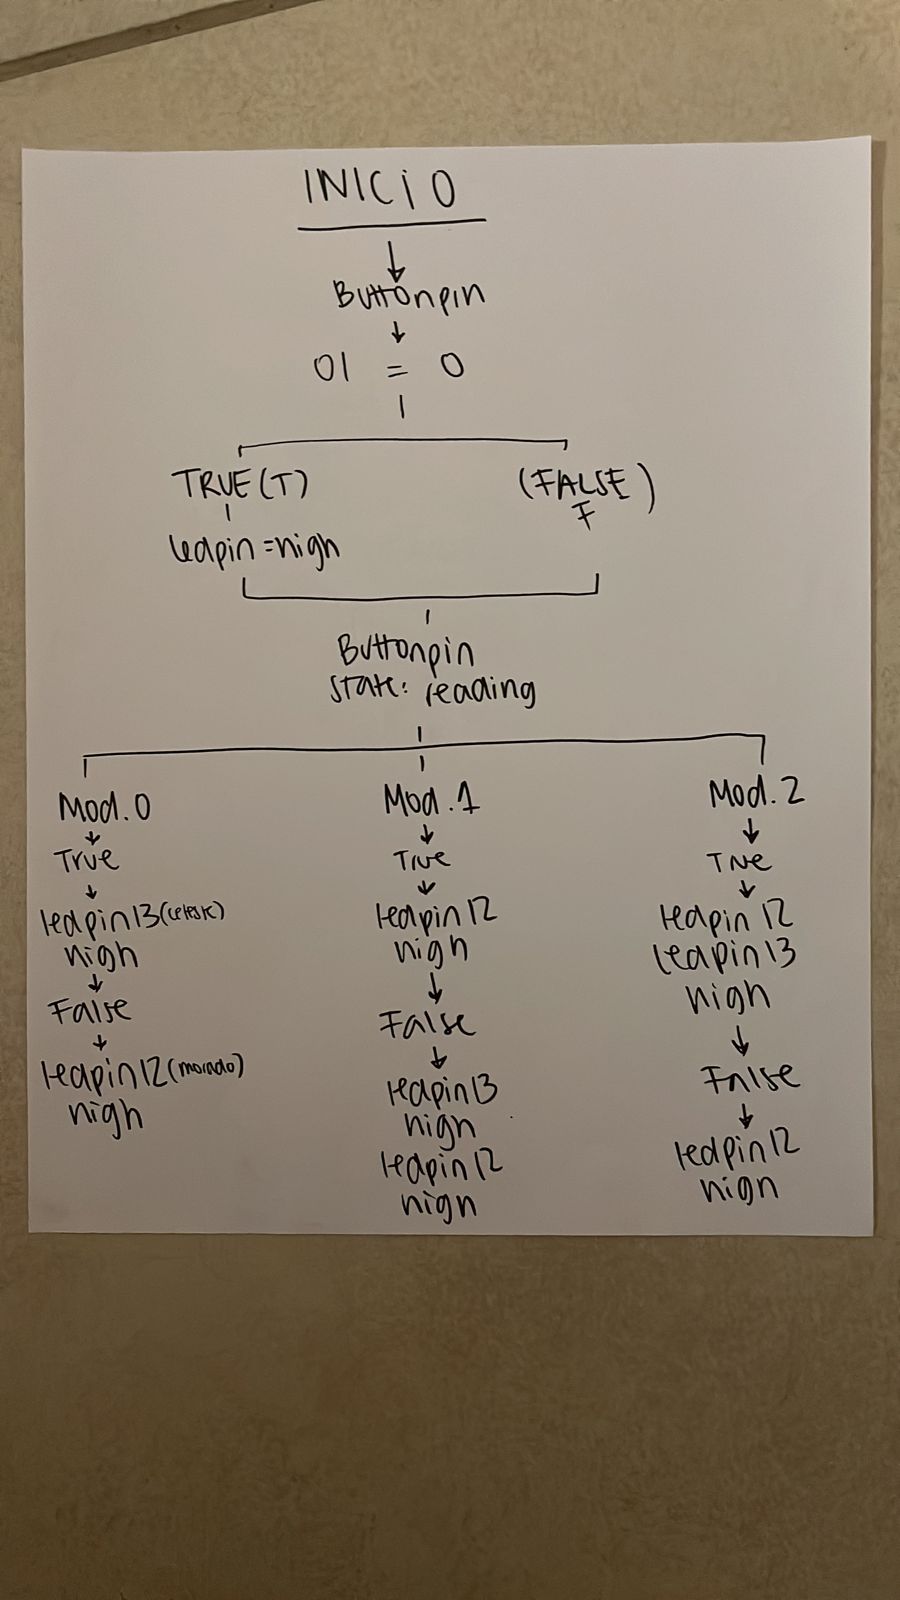 INICIO
Buttonpin
01 = 0
TRUE (T)
(FALSE)
F
ledpin = high
Buttonpin
state: reading
Mod. 0
True
ledpin 13 (celeste)
high
False
ledpin 12 (morado)
high
Mod. 1
True
ledpin 12
high
False
ledpin 13
high
ledpin 12
high
Mod. 2
True
ledpin 12
ledpin 13
high
False
ledpin 12
high